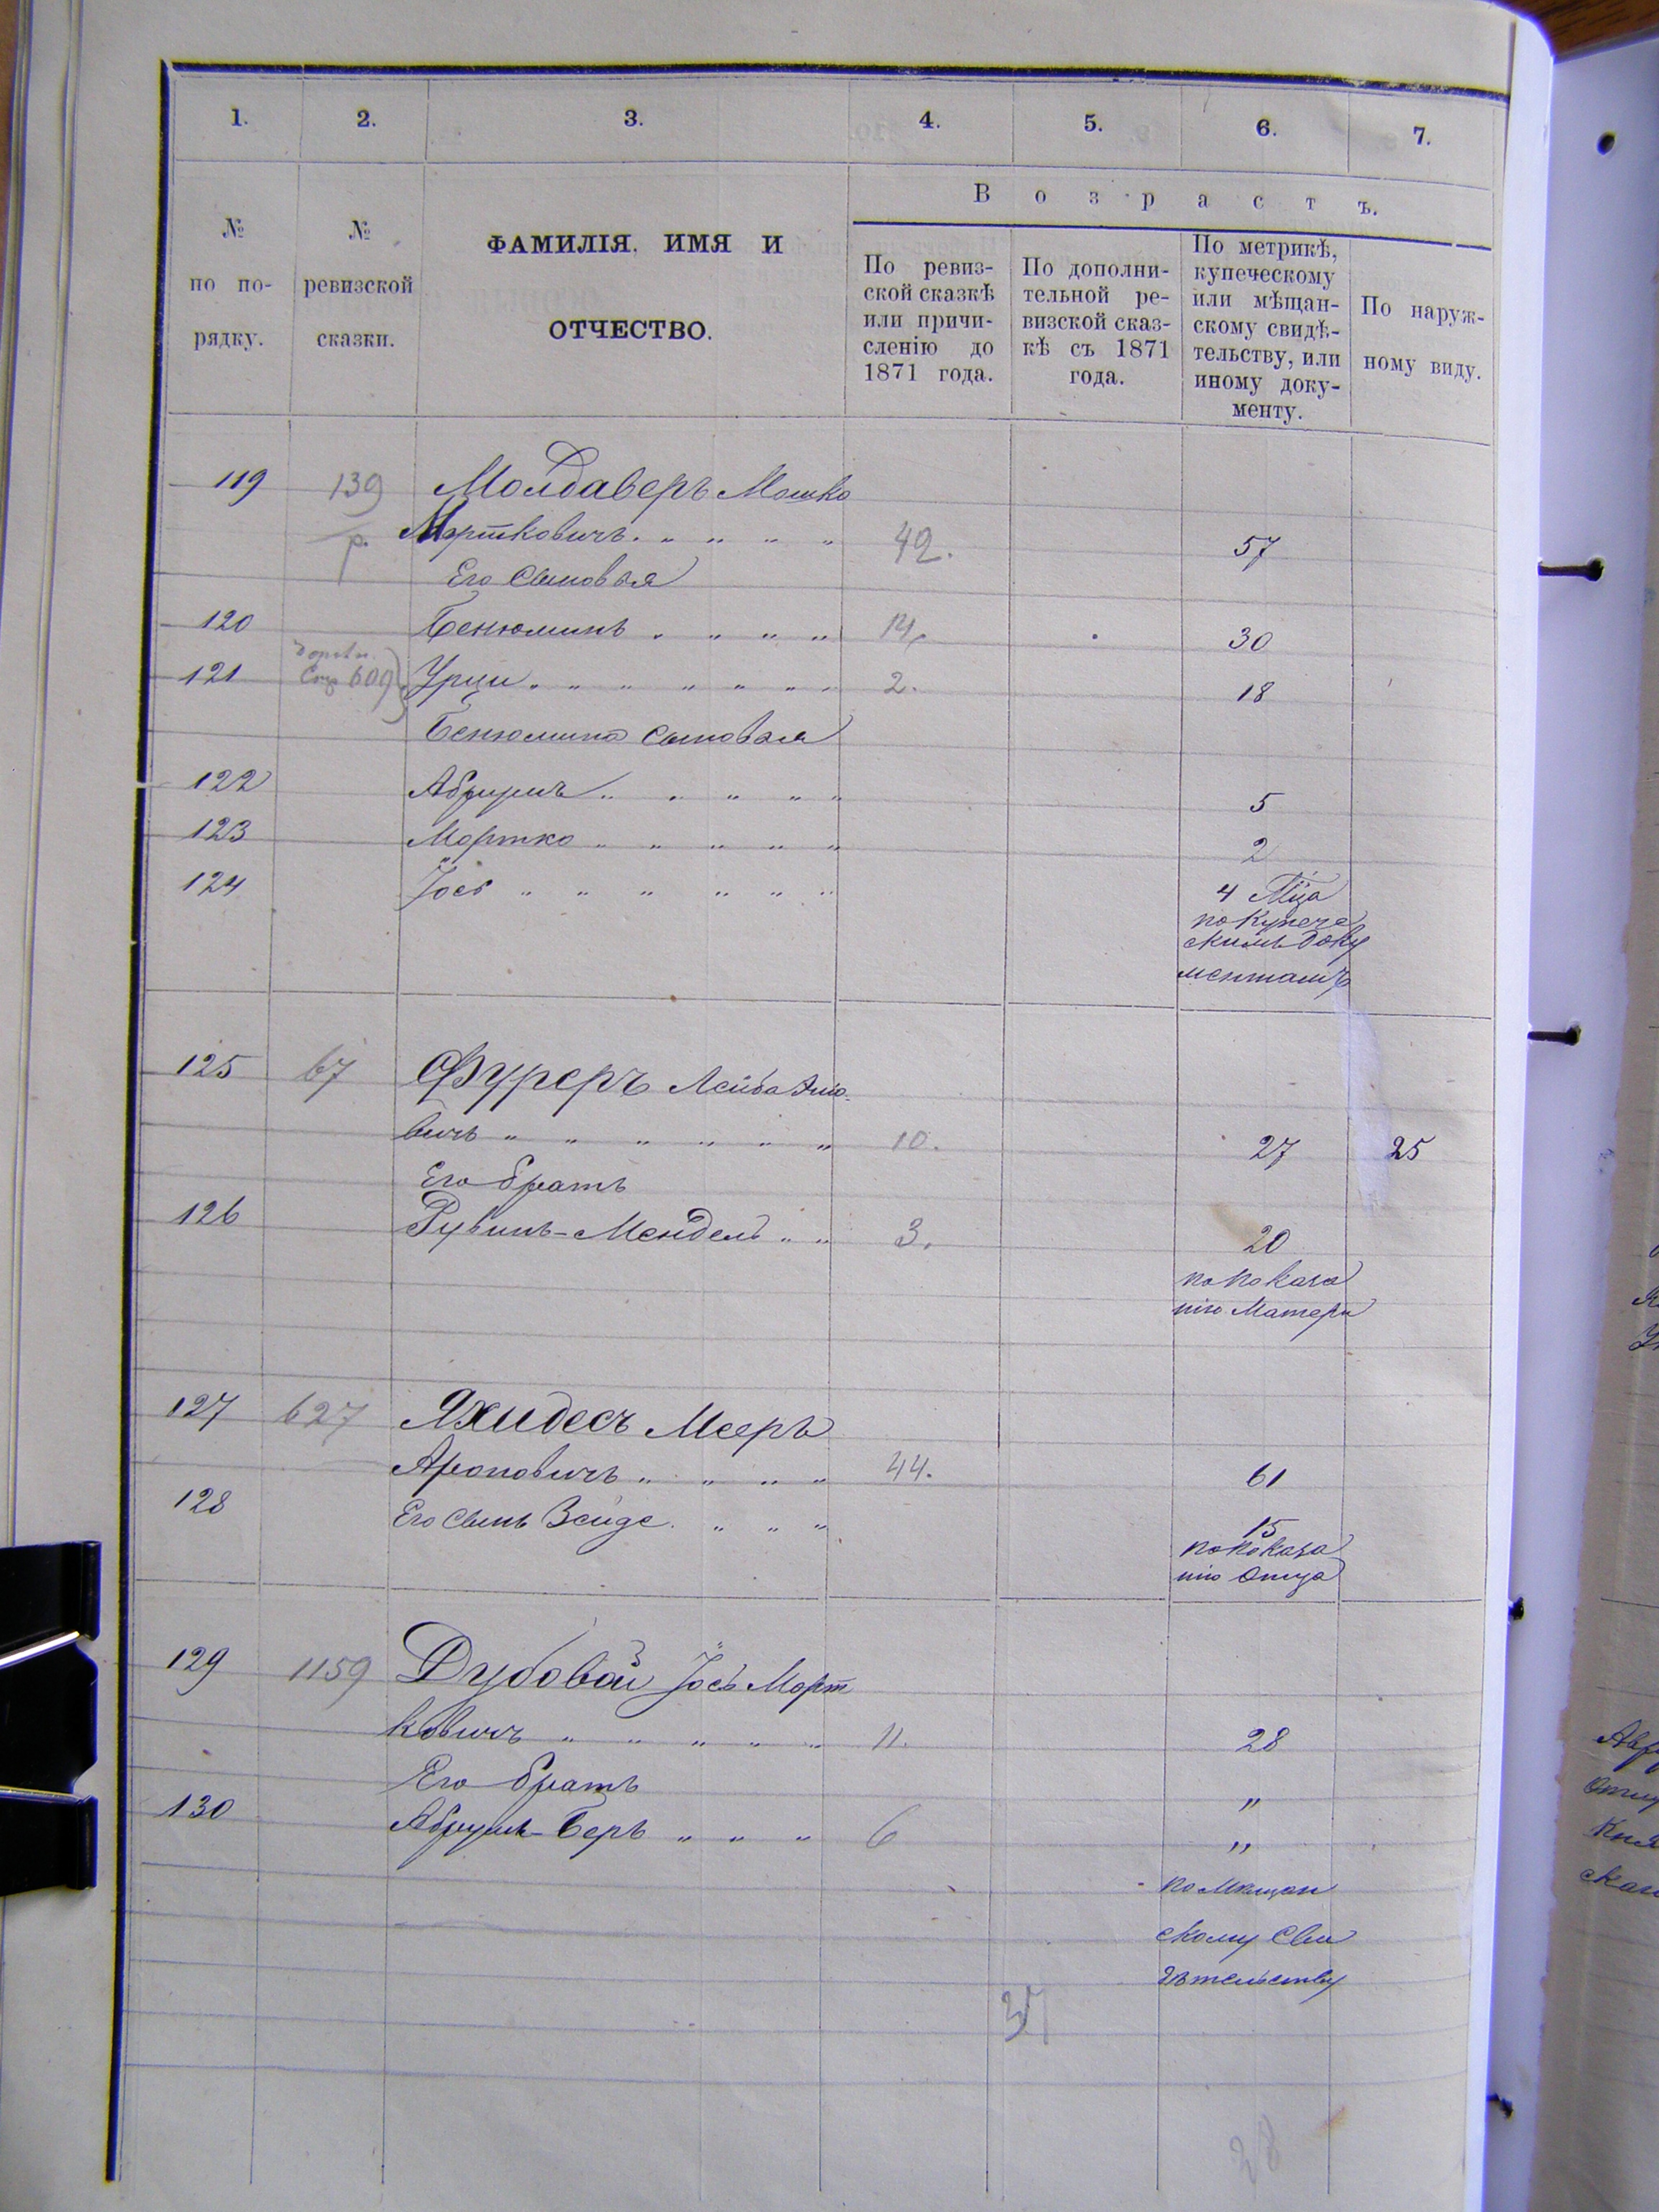 1. 2. 3. 4. 5. 6. 7.
В о з р а с т ъ.
№ по по-рядку.
№ ревизской сказки.
ФАМИЛІЯ. ИМЯ И
ОТЧЕСТВО.
По ревиз-
ской сказкѣ
или причи-
сленію до
1871 года.
По дополни-
тельной ре-
визской сказ-
кѣ съ 1871
года.
По метрикѣ,
купеческому
или мѣщан-
скому свидѣ-
тельству, или
иному доку-
менту.
По наруж-
ному виду.
119 139 Молдаверъ Мошко
р. Мортковичъ. „ „ „ „ 42. 57
Его Сыновья
120 Бенюминъ „ „ „ „ 14. 30
121 609 Урци „ „ „ „ „ „ 2. 18
Бенюмина Сыновья
122 Абрумъ „ „ „ „ „ 5
123 Мортко „ „ „ „ „ 2
124 Іось „ „ „ „ „ „ 4 М̃ца
по Купече
скимъ доку
ментамъ
125 67 Фуреръ Лейба
вичъ „ „ „ „ „ „ 10. 27 25
Его братъ
126 Рувинъ-Мендель „ „ 3. 20
по показа
нію Матери
127 627 Яхидесъ Мееръ
Ароновичъ „ „ „ „ 44. 61
128 Его Сынъ Зейде. „ „ „ 15
по показа
нію Отца
129 1159 Дубовой Іось Морт
ковичъ „ „ „ „ „ 11. 28
Его братъ „
130 Абрумъ-Беръ „ „ „ 6 „
по Мѣщан
скому Сви
дѣтельству
37
28